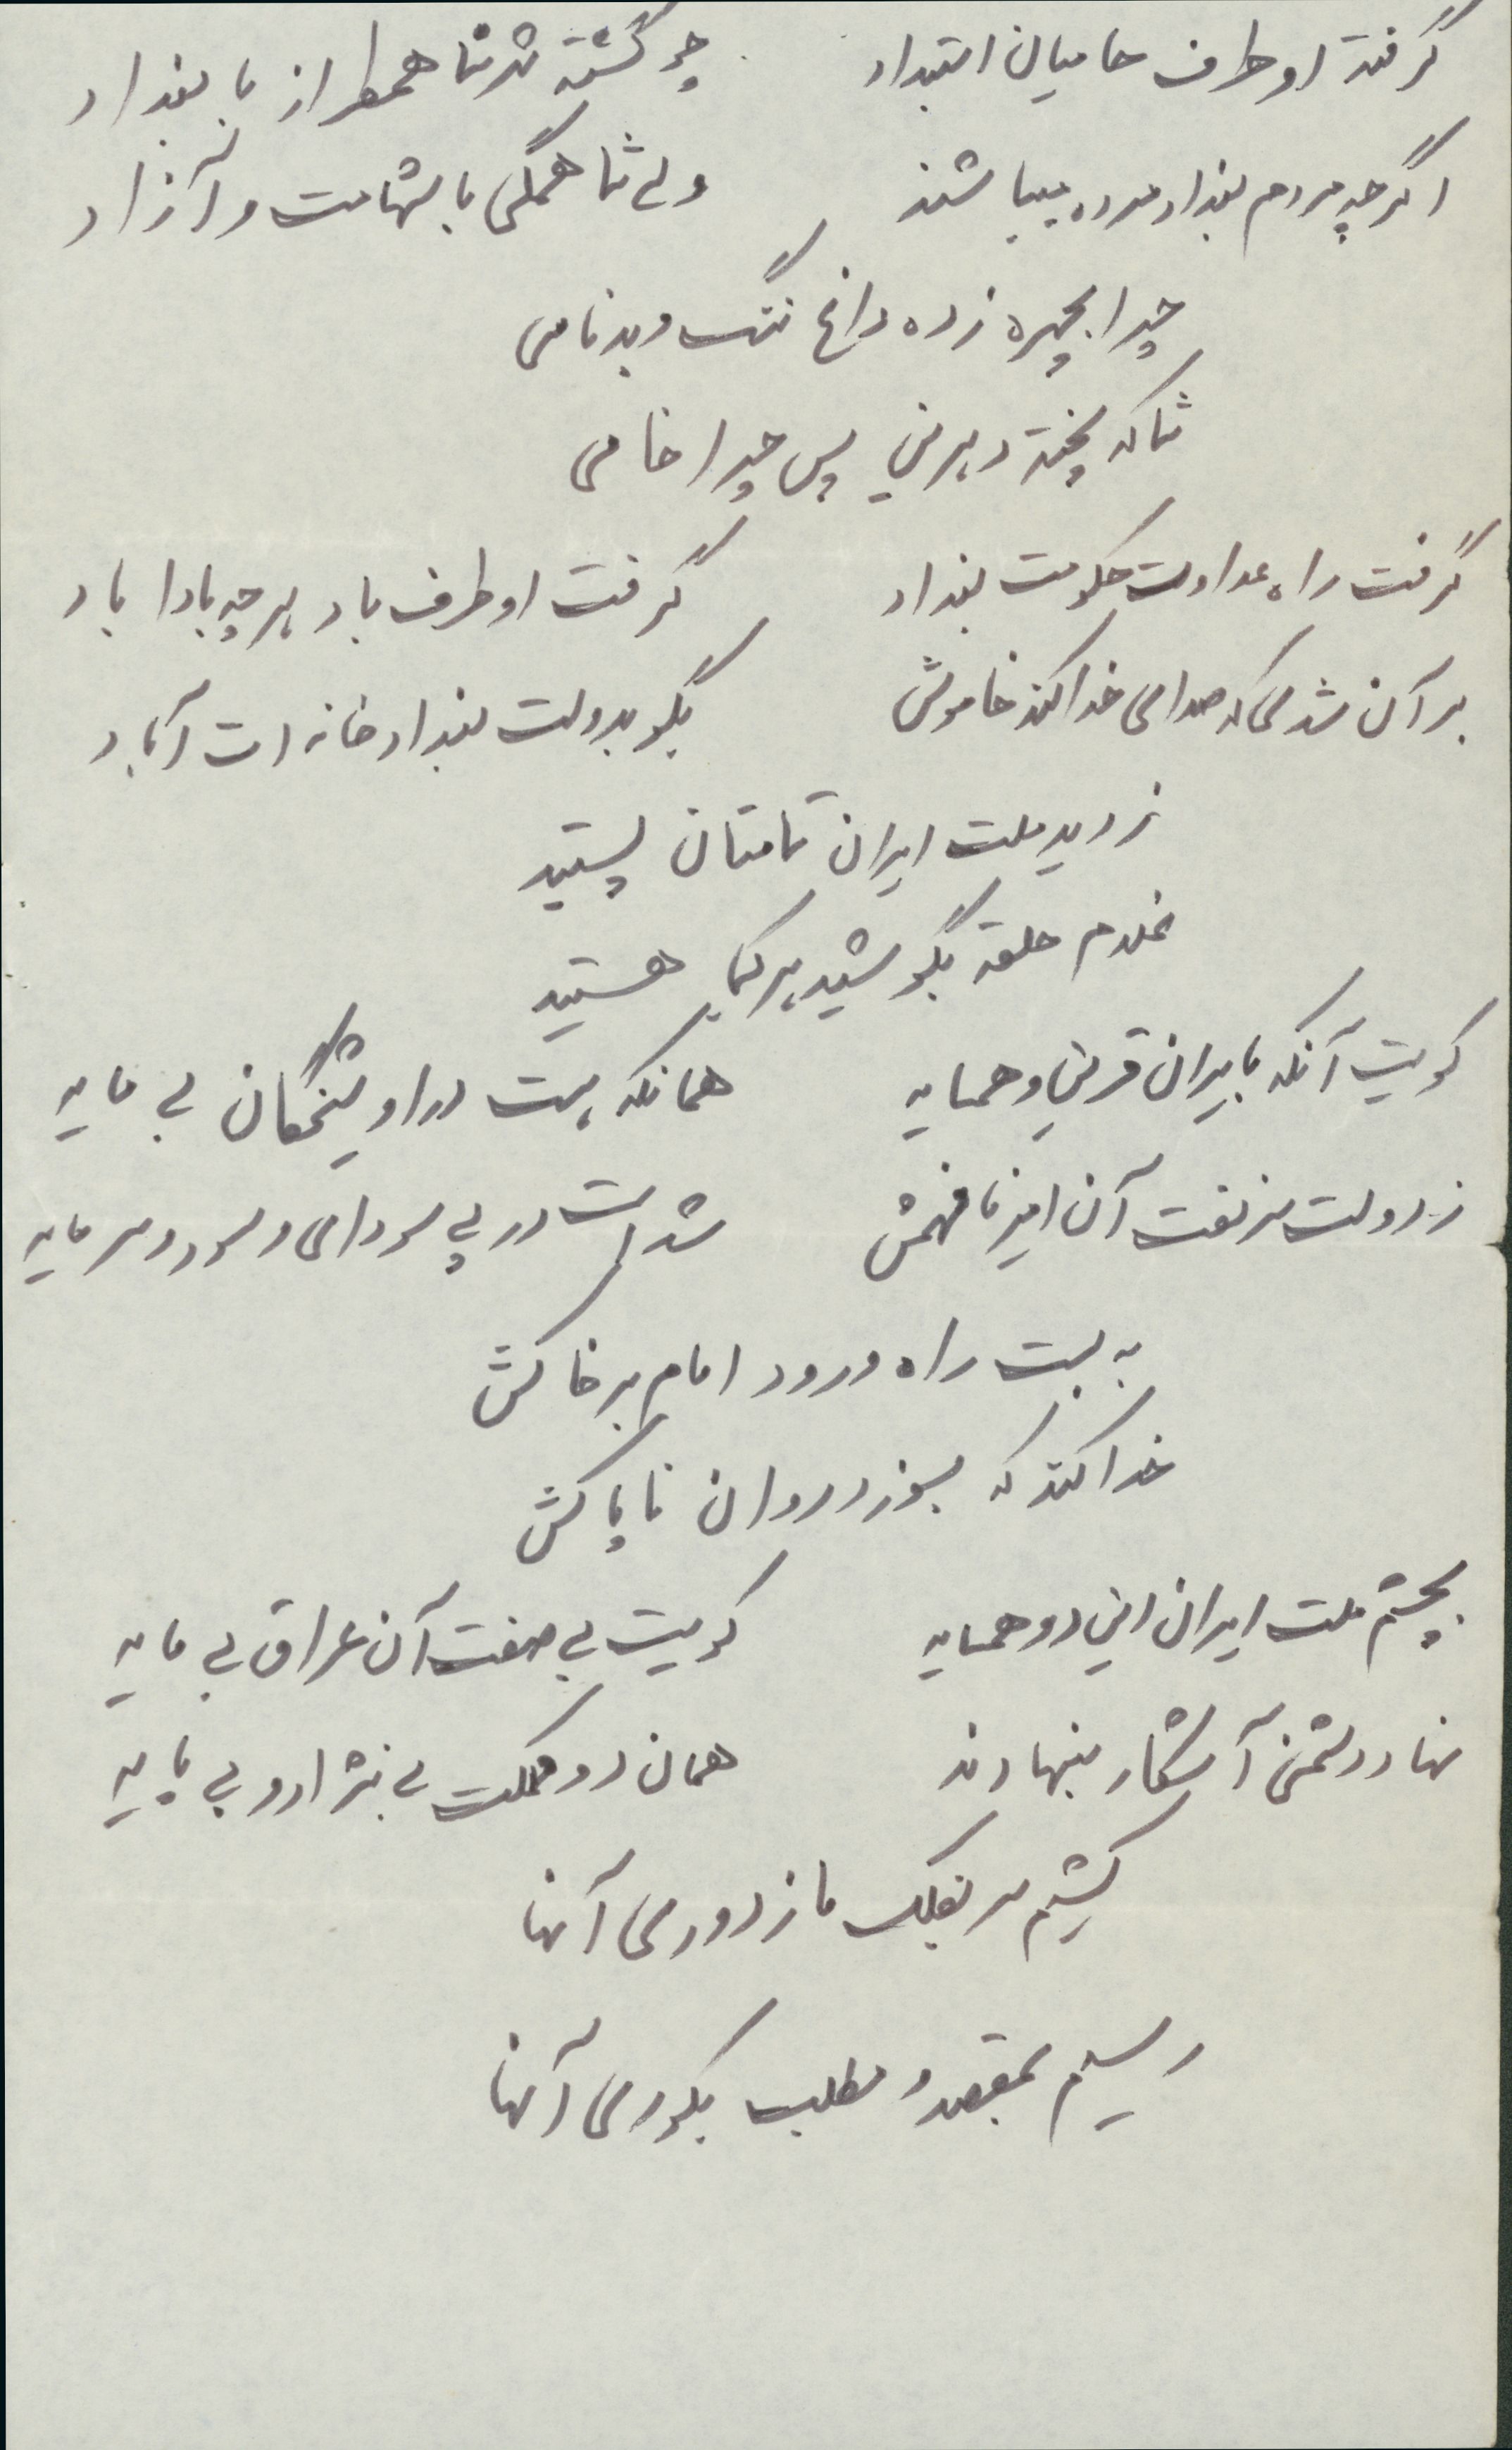 گرفته او طرف حامیان استبداد چو گشته شما همطراز با بغداد
اگرچه مردم بغداد مرده میباشند ولی شما همگی با شهامت و آزاد
چرا بچهره زده داغ ننگ و بدنامی
شما که پخته دهرنی پس چرا خامی
گرفت راه عداوت حکومت بغداد گرفت او طرف باد هرچه بادا باد
بر آن شدی که صدای خدا کند خاموش بگو بدولت بغداد خانه ات آباد
ز دید ملت ایران تمامتان پستید
غلام حلقه بگوشید هر کجا هستید
کویت آنکه بایران قرین و همسایه همانکه هست در او شیخکان بی مایه
ز دولت سر نفت آن امیر نافهمش شد است در پی سودای و سود و سرمایه
به بست راه ورود امام بر خاکش
خدا کند که بسوزد روان ناپاکش
بچشم ملت ایران این دو همسایه کویت بی صفت آن عراق بی مایه
نهاد دشمنی آشکار بنهادند همان دو مملکت بی نژاد و بی پایه
کشیم سر بفلک ما ز دوری آنها
رسیم بمقصد و مطلب بکوری آنها